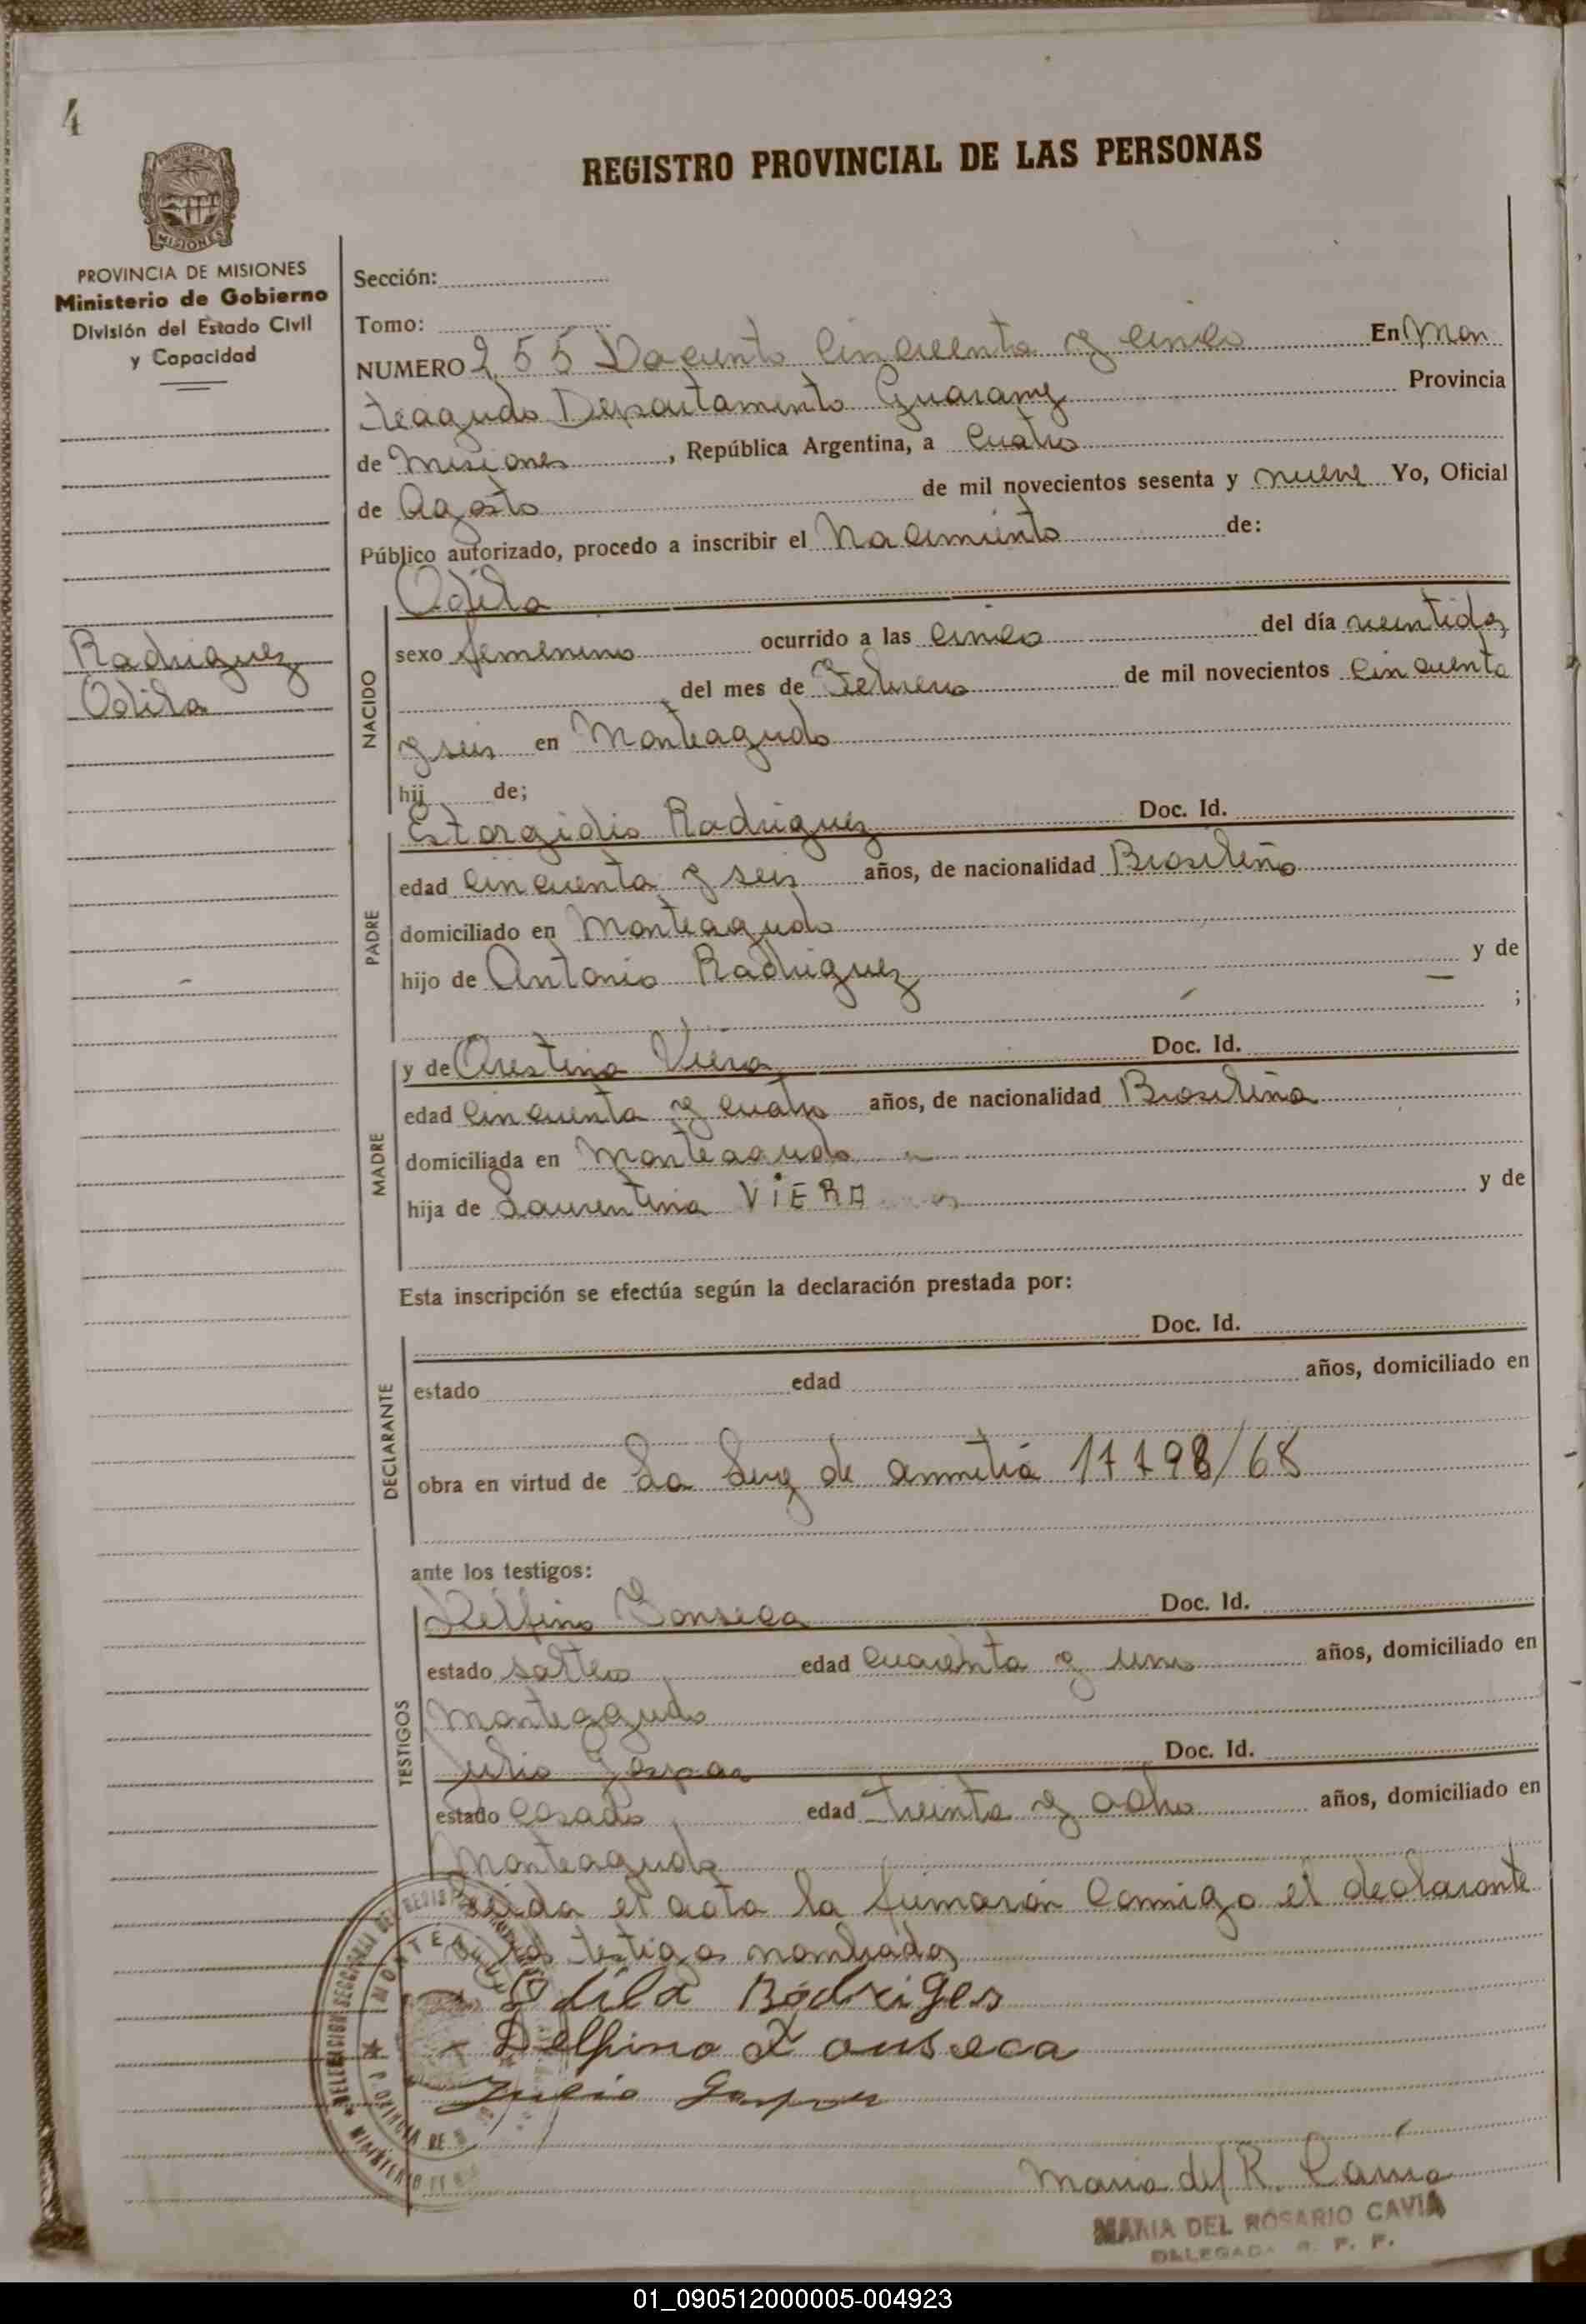 4
REGISTRO PROVINCIAL DE LAS PERSONAS
PROVINCIA DE MISIONES
Ministerio de Gobierno
División del Estado Civil
y Capacidad
Rodriguez
Odila
Sección:
Tomo:
NUMERO 255 Docunto Cincuenta y cinco En Mon
teagudo Departamento Guarany Provincia
de Misiones, República Argentina, a Cuatro
de Agosto de mil novecientos sesenta y nueve Yo, Oficial
Público autorizado, procedo a inscribir el Nacimiento de:
Odila
NACIDO
sexo femenino ocurrido a las cinco del día veintidos
del mes de Febrero de mil novecientos Cincuenta
y seis en Monteagudo
hij de;
PADRE
Estorgidio Rodriguez Doc. Id.
edad Cincuenta y seis años, de nacionalidad Brasileño
domiciliado en Monteagudo
hijo de Antonio Rodriguez y de
;
MADRE
y de Orestina Viera Doc. Id.
edad Cincuenta y cuatro años, de nacionalidad Brasileña
domiciliada en Monteagudo
hija de Laurentina VIERA y de
Esta inscripción se efectúa según la declaración prestada por:
DECLARANTE
Doc. Id.
estado edad años, domiciliado en
obra en virtud de La Ley de 17798/68
ante los testigos:
TESTIGOS
Delfino Fonseca Doc. Id.
estado soltero edad cuarenta y uno años, domiciliado en
Monteagudo
Julio Gaspar Doc. Id.
estado Casado edad treinta y ocho años, domiciliado en
Monteagudo
Leida el acta la firmarón Comigo el declarante
los testigos nombrados
Odila Rodriges
Delfino Fonseca
Julio Gaspar
Maria del R. Cavia
MARIA DEL ROSARIO CAVIA
DELEGADA R. P. P.
01_090512000005-004923